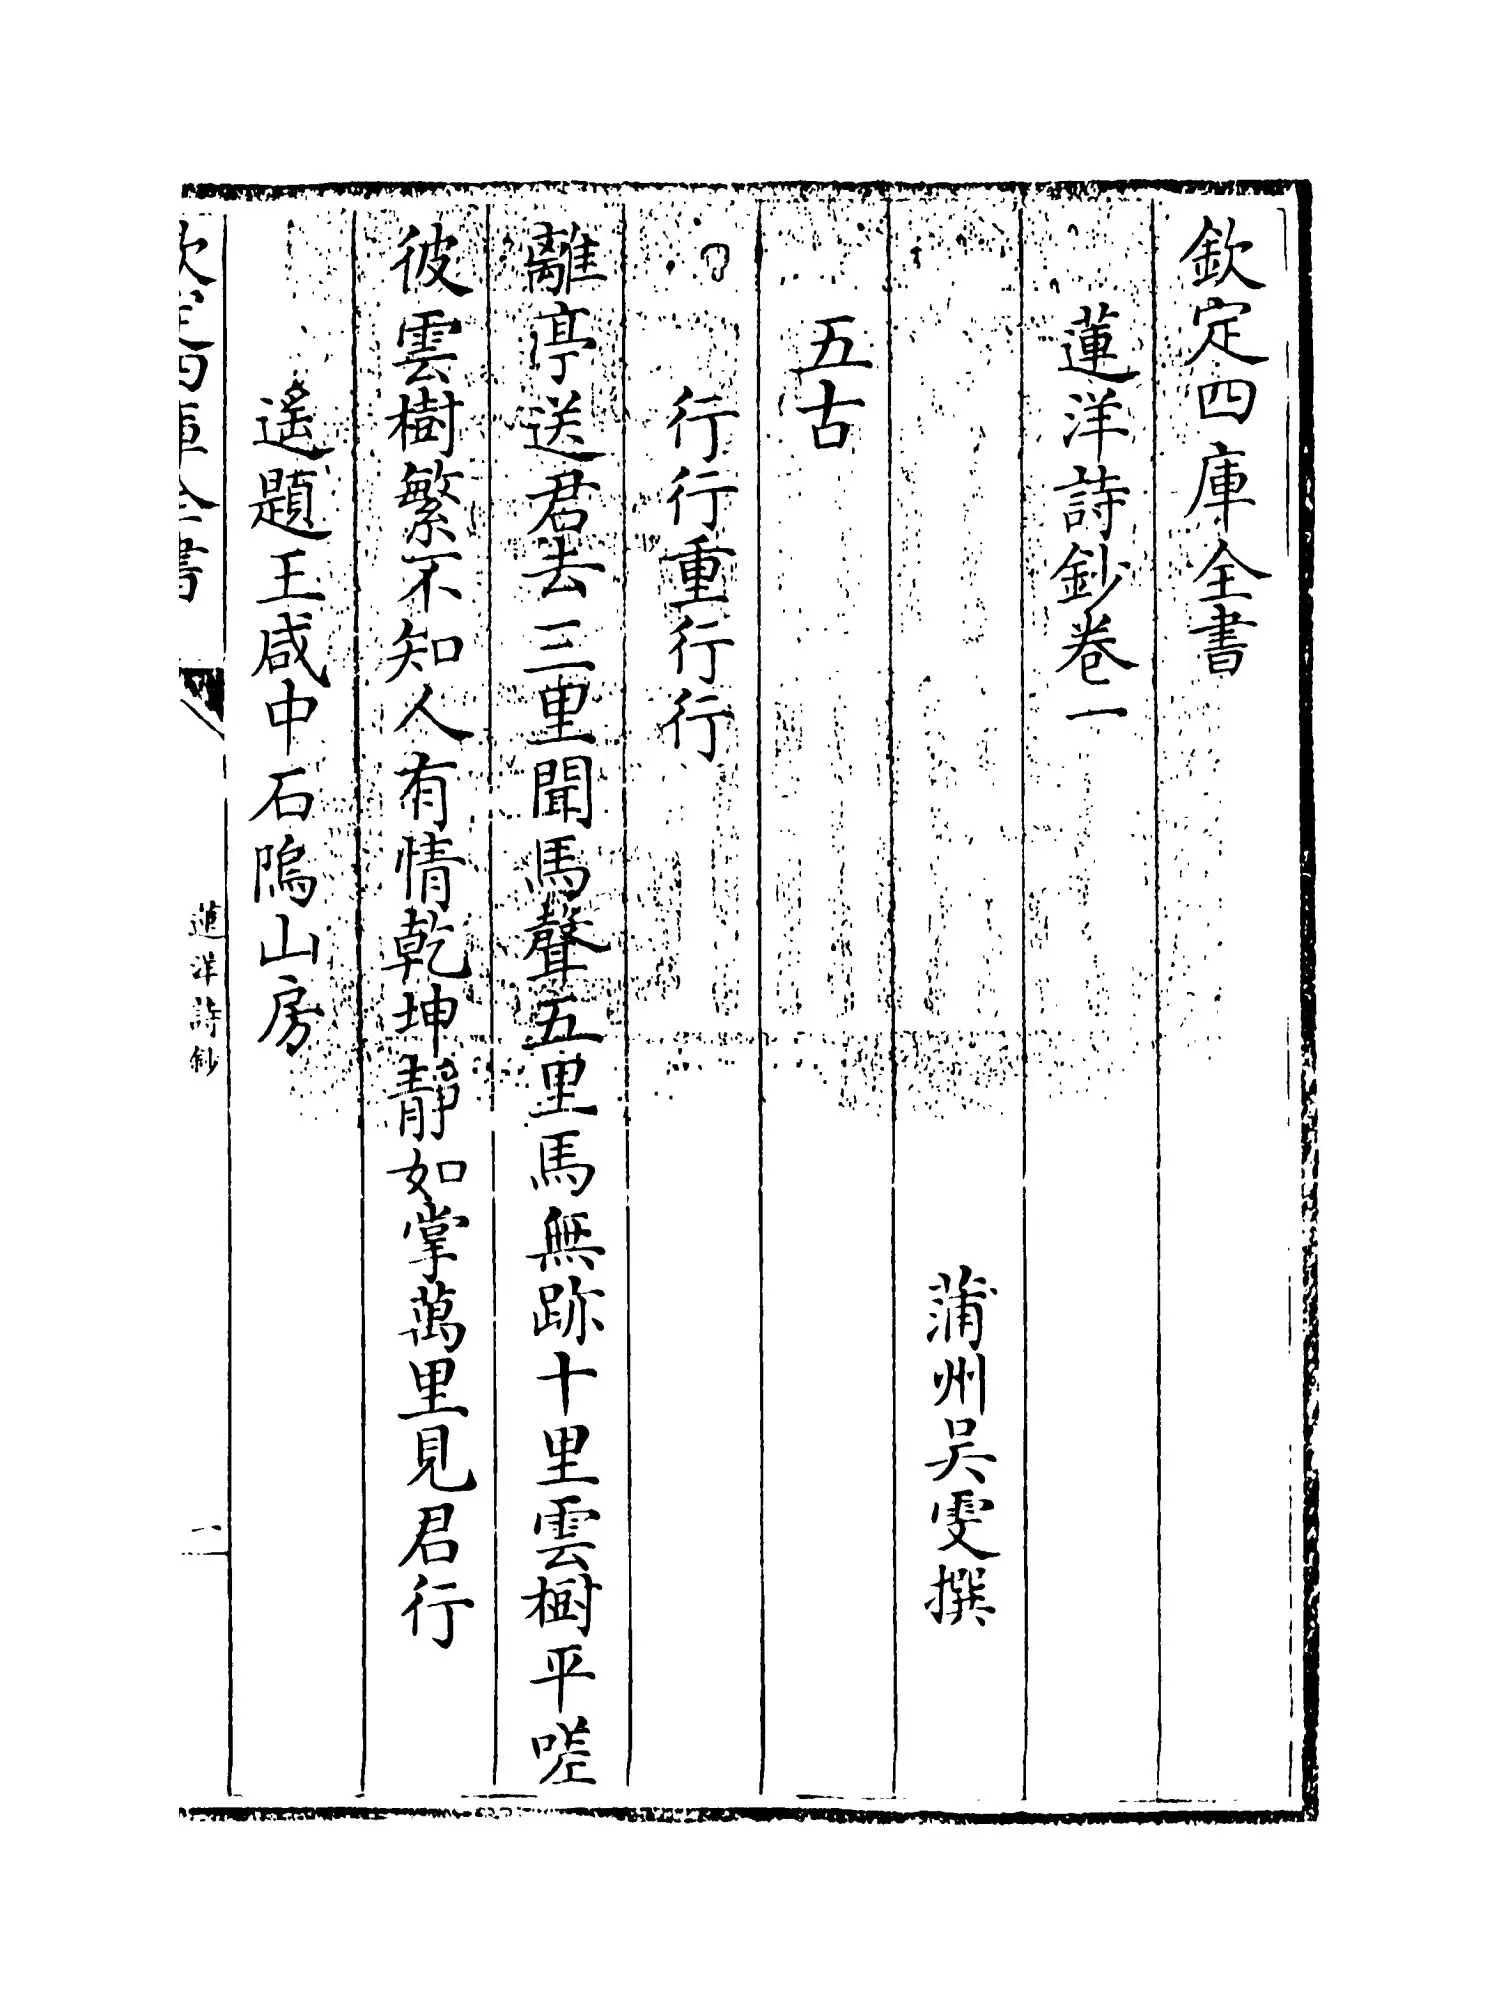 欽定四庫全書
蓮洋詩鈔卷一
蒲州吳雯撰
五古
行行重行行
離亭送君去三里聞馬聲五里馬無跡十里雲樹平嗟
彼雲樹繁不知人有情乾坤靜如掌萬里見君行
遙題王咸中石隖山房
欽定四庫全書
蓮洋詩鈔
一